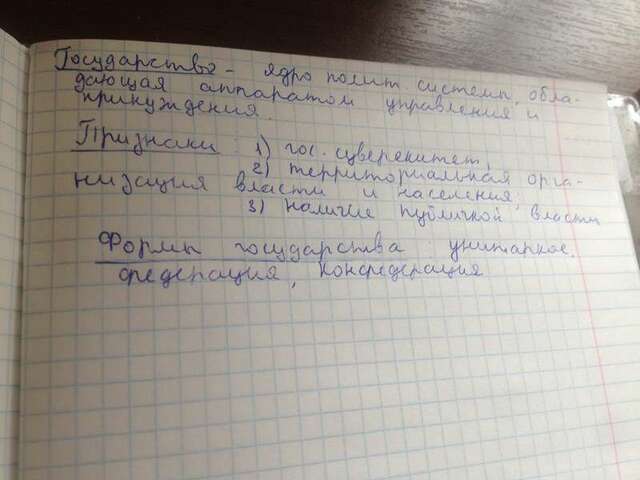 Государство - ядро полит. системы, обла-
дающая аппаратом управления и
принуждения.
Признаки: 1) гос. суверенитет,
2) территориальная орга-
низация власти и населения,
3) наличие публичной власти
Формы государства: унитарное,
федерация, конфедерация